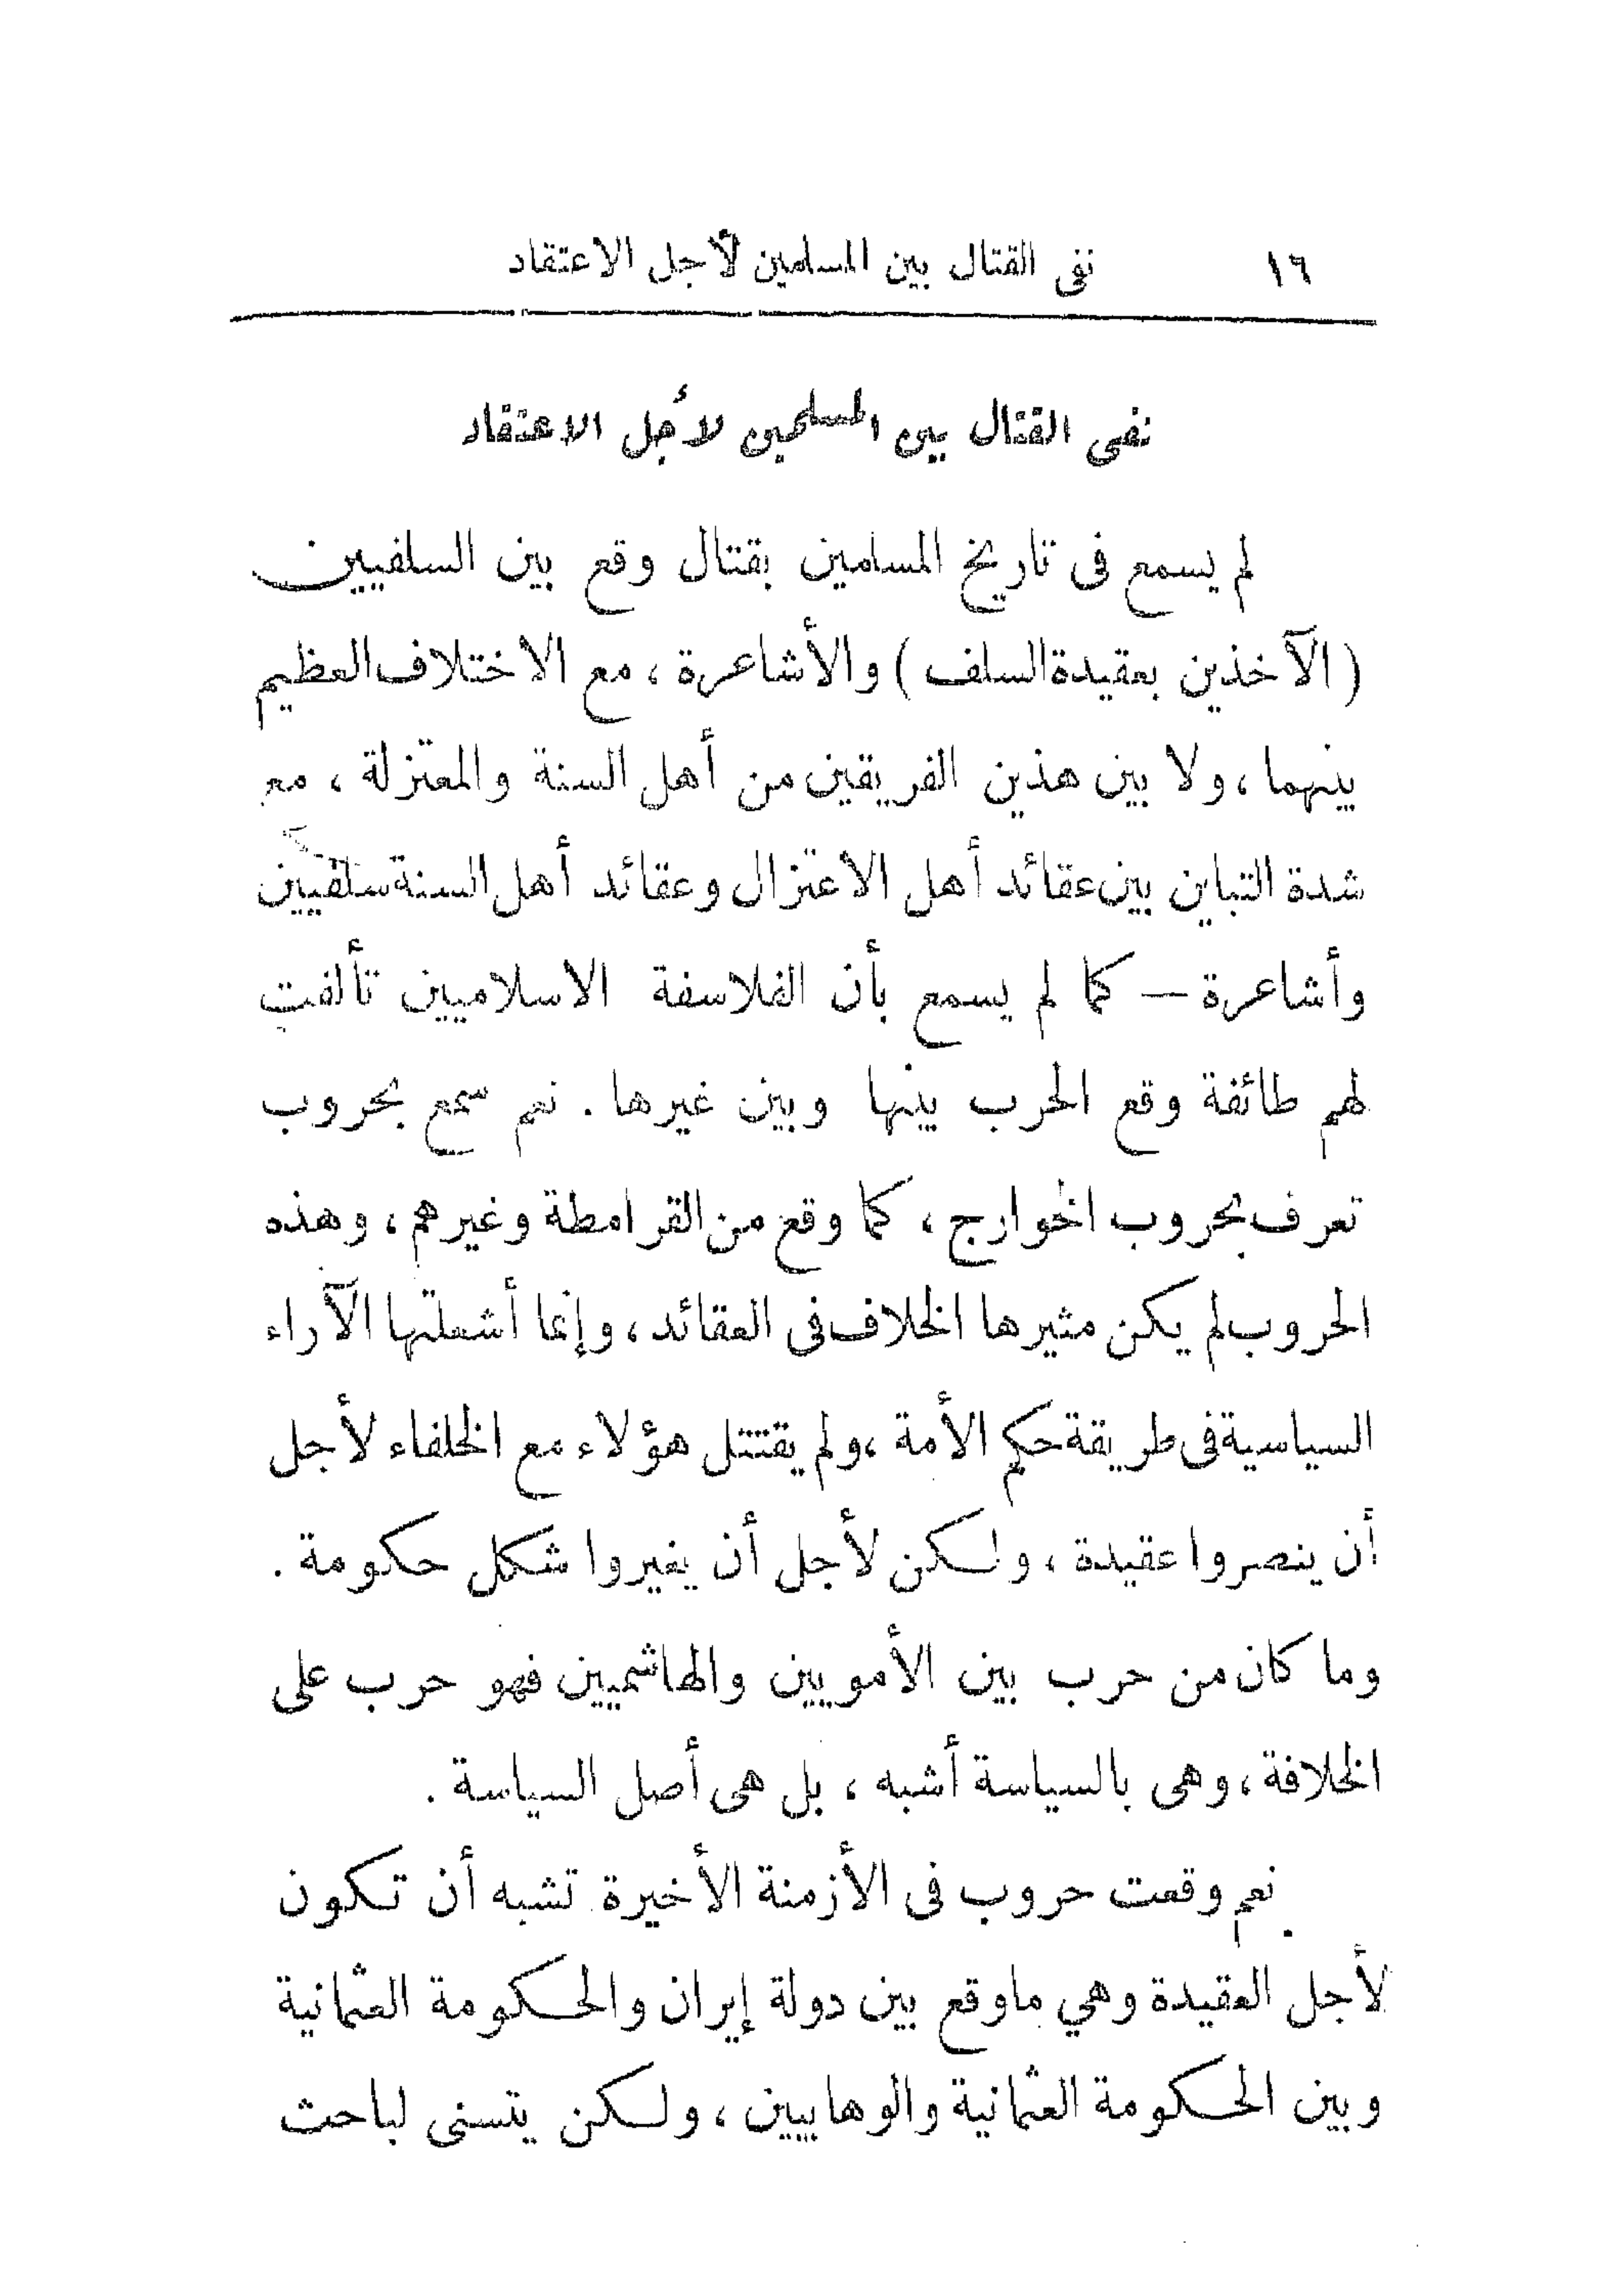 ١٦ نفى القتال بين المسلمين لأجل الاعتقاد
نفى القتال بين المسلمين لأجل الاعتقاد
لم يسمع فى تاريخ المسلمين بقتال وقع بين السلفيين
( الآخذين بعقيدة السلف ) والأشاعرة ، مع الاختلاف العظيم
بينهما ، ولا بين هذين الفريقين من أهل السنة والمعتزلة ، مع
شدة التباين بين عقائد أهل الاعتزال وعقائد أهل السنة سلفيين
وأشاعرة — كما لم يسمع بأن الفلاسفة الاسلاميين تألفت
لهم طائفة وقع الحرب بينها وبين غيرها . نعم سمع بحروب
تعرف بحروب الخوارج ، كما وقع من القرامطة وغيرهم ، وهذه
الحروب لم يكن مثيرها الخلاف فى العقائد ، وإنما أشعلتها الآراء
السياسية فى طريقة حكم الأمة ، ولم يقتتل هؤلاء مع الخلفاء لأجل
أن ينصروا عقيدة ، ولكن لأجل أن يغيروا شكل حكومة .
وما كان من حرب بين الأمويين والهاشميين فهو حرب على
الخلافة ، وهى بالسياسة أشبه ، بل هى أصل السياسة .
نعم وقعت حروب فى الأزمنة الأخيرة تشبه أن تكون
لأجل العقيدة وهي ماوقع بين دولة إيران والحكومة العثمانية
وبين الحكومة العثمانية والوهابيين ، ولكن يتسنى لباحث